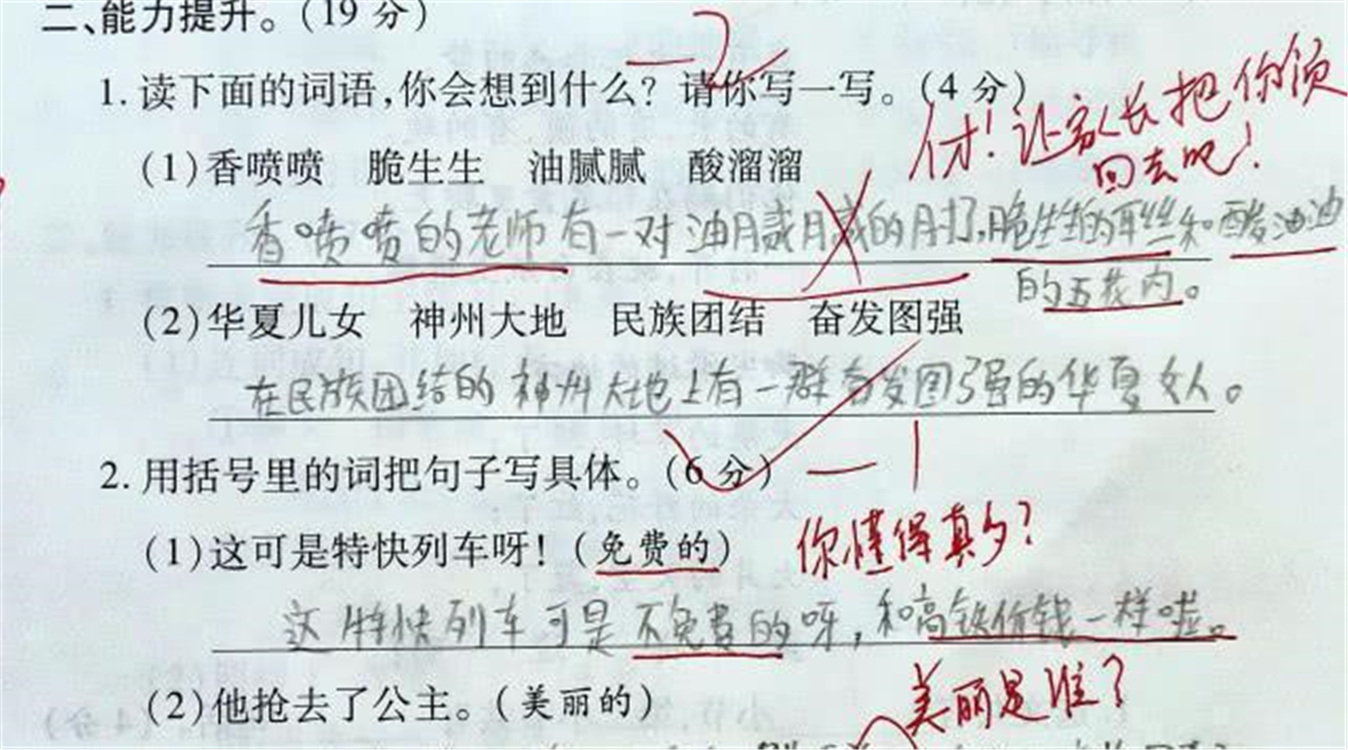 二、能力提升。(19 分)
-2
1. 读下面的词语,你会想到什么? 请你写一写。(4 分)
付! 让家长把你领
回去吧!
(1)香喷喷 脆生生 油腻腻 酸溜溜
香喷喷的老师有一对油腻腻的肘子,脆生生的耳丝和酸油油
的五花肉。
(2)华夏儿女 神州大地 民族团结 奋发图强
在民族团结的神州大地上有一群奋发图强的华夏女人。
2. 用括号里的词把句子写具体。(6 分) -1
(1)这可是特快列车呀!(免费的) 你懂得真多?
这特快列车可是不免费的呀,和高铁价钱一样啦。
(2)他抢去了公主。(美丽的) 美丽是谁?